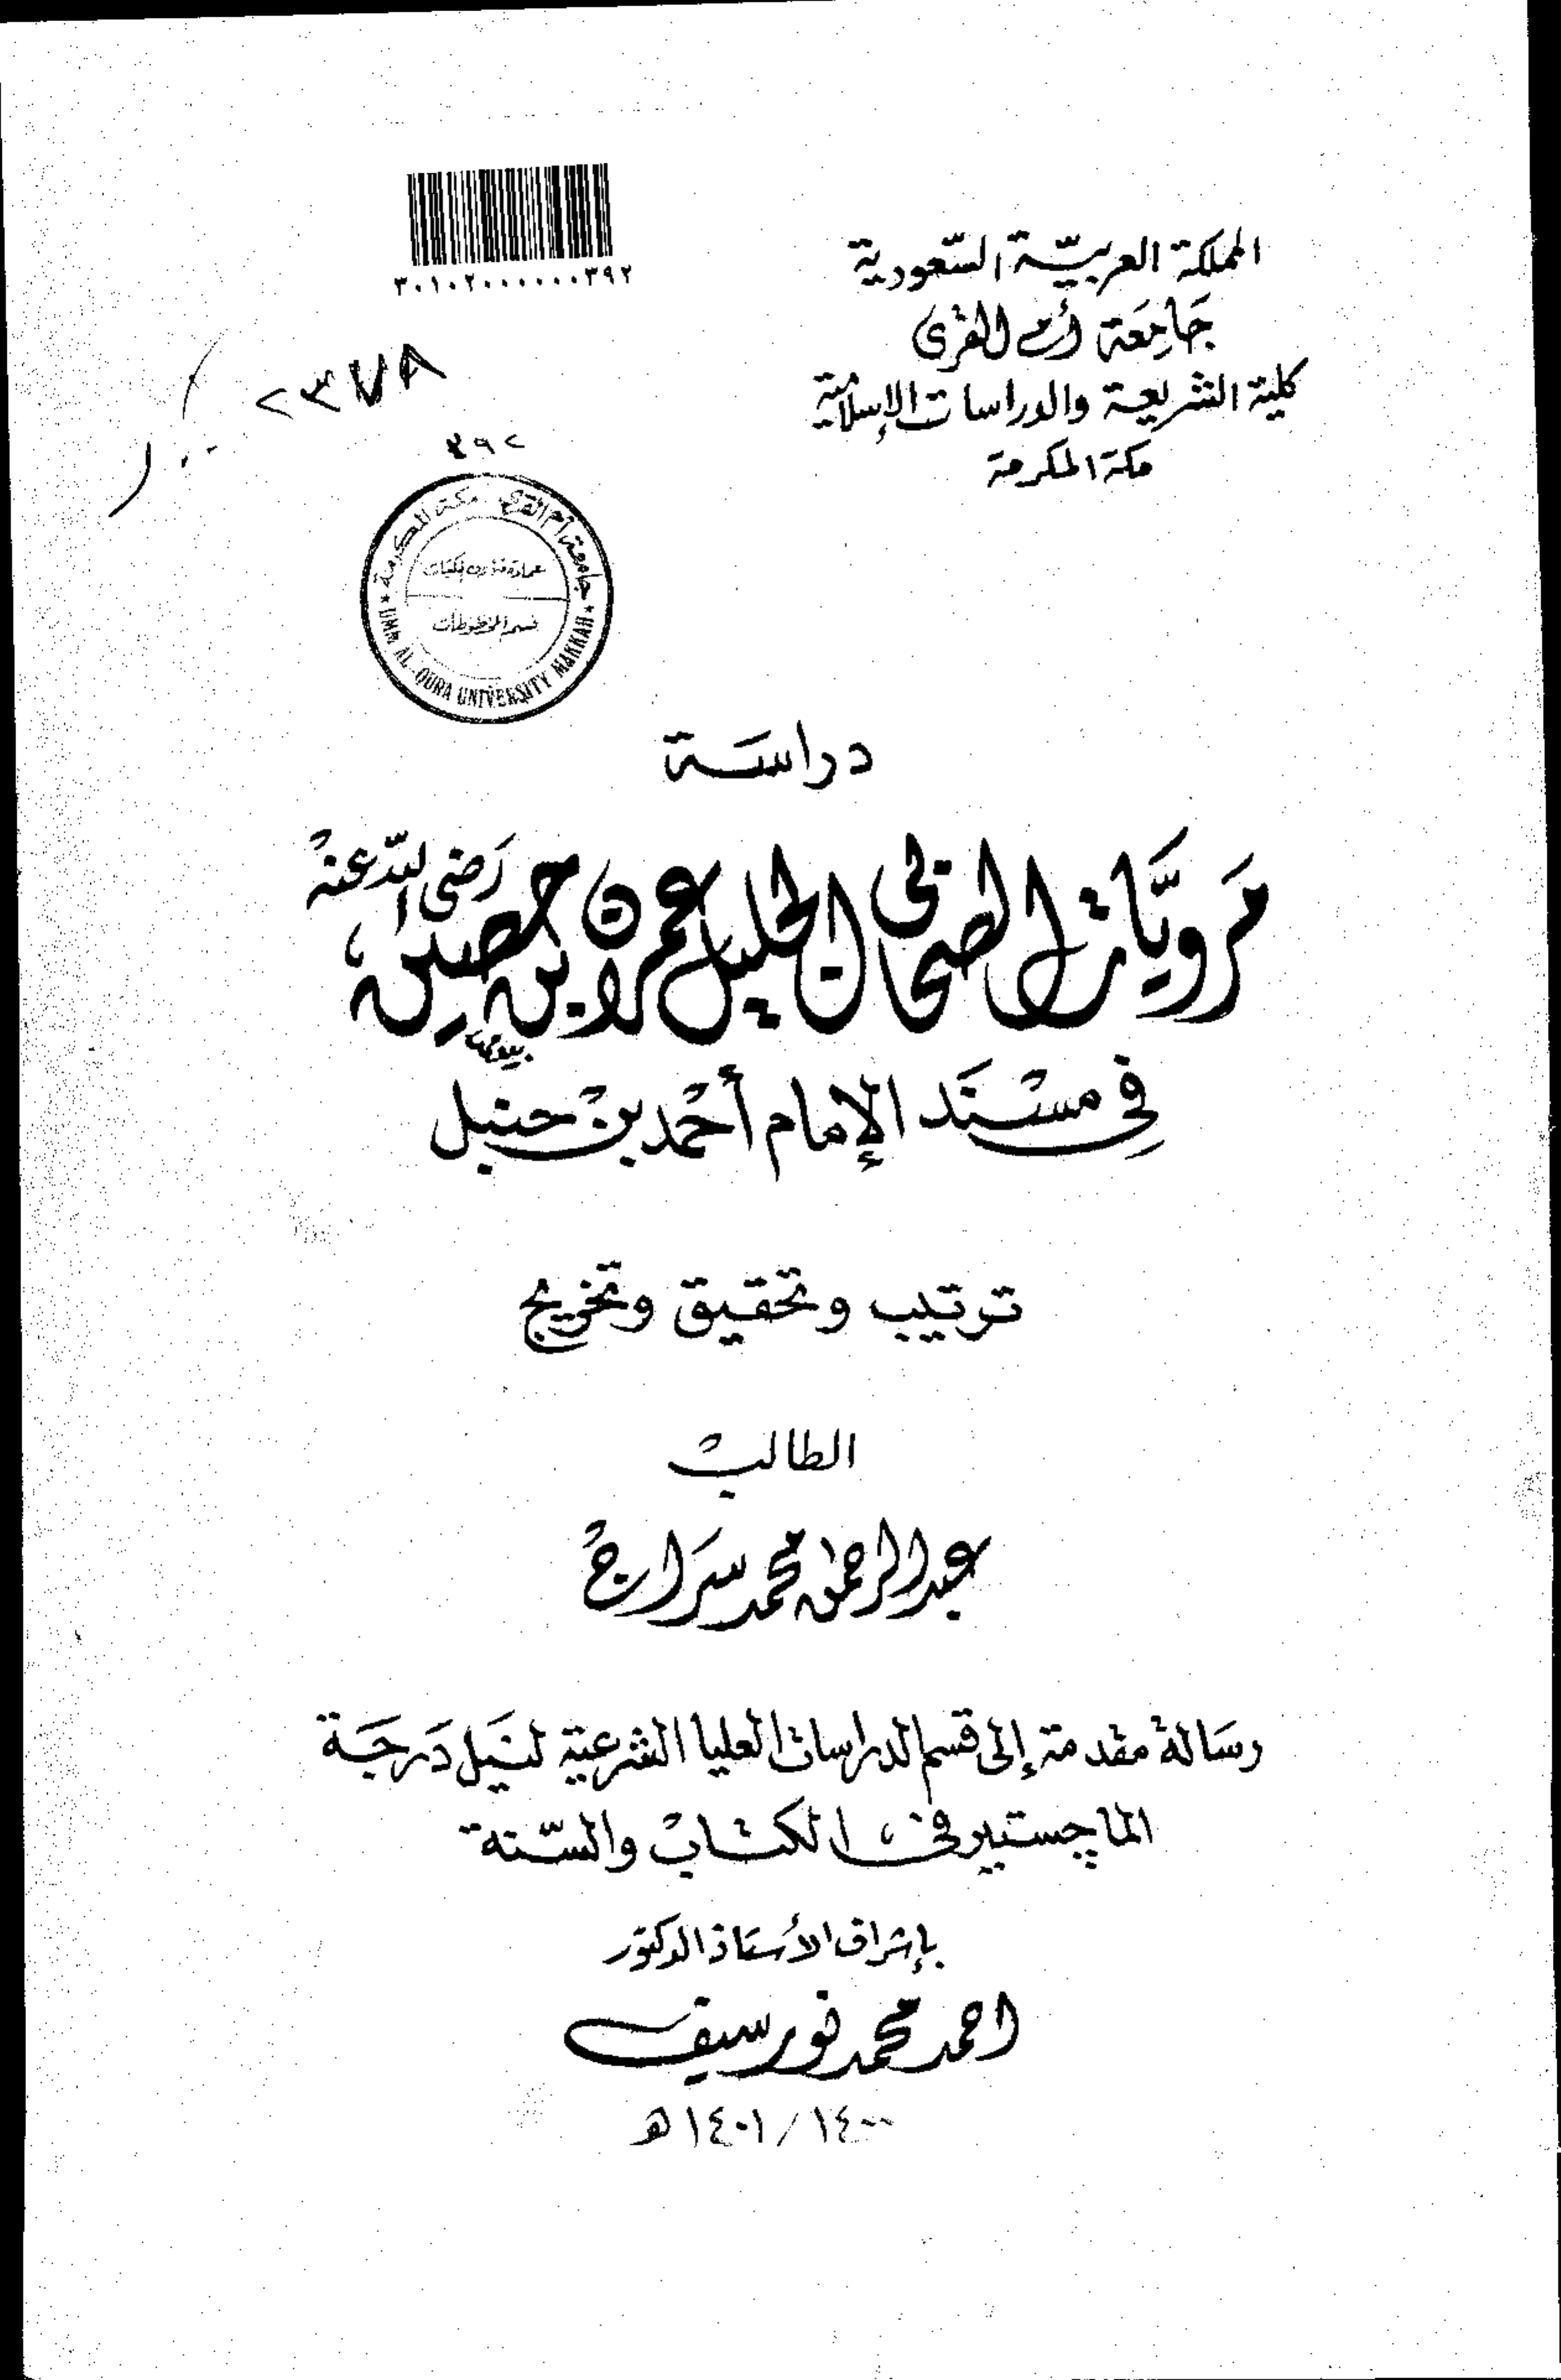 المملكة العربيّة السّعودية
جَامِعَة أم القرى
كلية الشريعة والدراسات الإسلامية
مكة المكرمة
٣٠١٠٢٠٠٠٠٠٠٣٩٢
٢٣٧٨
٣٩٢
جامعة أم القرى مكة المكرمة
قسم المخطوطات
UMM AL-QURA UNIVERSITY MAKKAH
دراسَة
مَرويَّات الصحابي الجليل عمران بن حصين رَضي الله عنهُ
في مسْنَد الإمام أحْمد بنْ حنبل
ترتيب وتحقيق وتخريج
الطالبْ
عبد الرحمن محمد سَراجْ
رسَالة مقدمة إلى قسم الدراسات العليا الشرعية لنَيل دَرجَة
الماجستير في الكتابْ والسّنة
بإشراف الأستاذ الدكتور
احمد محمد نور سيف
١٤٠٠ / ١٤٠١ هـ